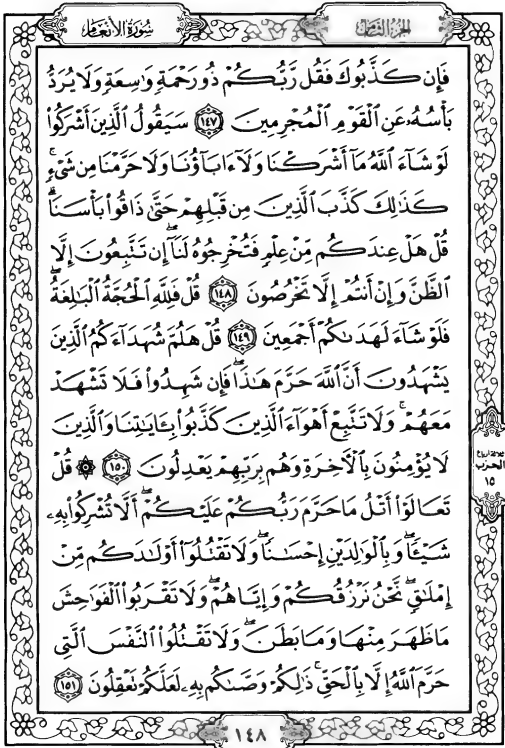 سُورَةُ الأَنْعَام
الجُزْءُ الثَّامِنُ
فَإِن كَذَّبُوكَ فَقُل رَّبُّكُمْ ذُو رَحْمَةٍ وَٰسِعَةٍ وَلَا يُرَدُّ
بَأْسُهُۥ عَنِ ٱلْقَوْمِ ٱلْمُجْرِمِينَ ١٤٧ سَيَقُولُ ٱلَّذِينَ أَشْرَكُوا۟
لَوْ شَآءَ ٱللَّهُ مَآ أَشْرَكْنَا وَلَآ ءَابَآؤُنَا وَلَا حَرَّمْنَا مِن شَىْءٍۚ
كَذَٰلِكَ كَذَّبَ ٱلَّذِينَ مِن قَبْلِهِمْ حَتَّىٰ ذَاقُوا۟ بَأْسَنَاۗ
قُلْ هَلْ عِندَكُم مِّنْ عِلْمٍ فَتُخْرِجُوهُ لَنَآۖ إِن تَتَّبِعُونَ إِلَّا
ٱلظَّنَّ وَإِنْ أَنتُمْ إِلَّا تَخْرُصُونَ ١٤٨ قُلْ فَلِلَّهِ ٱلْحُجَّةُ ٱلْبَٰلِغَةُۖ
فَلَوْ شَآءَ لَهَدَىٰكُمْ أَجْمَعِينَ ١٤٩ قُلْ هَلُمَّ شُهَدَآءَكُمُ ٱلَّذِينَ
يَشْهَدُونَ أَنَّ ٱللَّهَ حَرَّمَ هَٰذَاۖ فَإِن شَهِدُوا۟ فَلَا تَشْهَدْ
مَعَهُمْۚ وَلَا تَتَّبِعْ أَهْوَآءَ ٱلَّذِينَ كَذَّبُوا۟ بِـَٔايَٰتِنَا وَٱلَّذِينَ
لَا يُؤْمِنُونَ بِٱلْـَٔاخِرَةِ وَهُم بِرَبِّهِمْ يَعْدِلُونَ ١٥٠ ۞ قُلْ
تَعَالَوْا۟ أَتْلُ مَا حَرَّمَ رَبُّكُمْ عَلَيْكُمْۖ أَلَّا تُشْرِكُوا۟ بِهِۦ
شَيْـًٔاۖ وَبِٱلْوَٰلِدَيْنِ إِحْسَٰنًاۖ وَلَا تَقْتُلُوٓا۟ أَوْلَٰدَكُم مِّنْ
إِمْلَٰقٍۖ نَّحْنُ نَرْزُقُكُمْ وَإِيَّاهُمْۖ وَلَا تَقْرَبُوا۟ ٱلْفَوَٰحِشَ
مَا ظَهَرَ مِنْهَا وَمَا بَطَنَۖ وَلَا تَقْتُلُوا۟ ٱلنَّفْسَ ٱلَّتِى
حَرَّمَ ٱللَّهُ إِلَّا بِٱلْحَقِّۚ ذَٰلِكُمْ وَصَّىٰكُم بِهِۦ لَعَلَّكُمْ تَعْقِلُونَ ١٥١
ثلاثة أرباع
الحزب
١٥
١٤٨